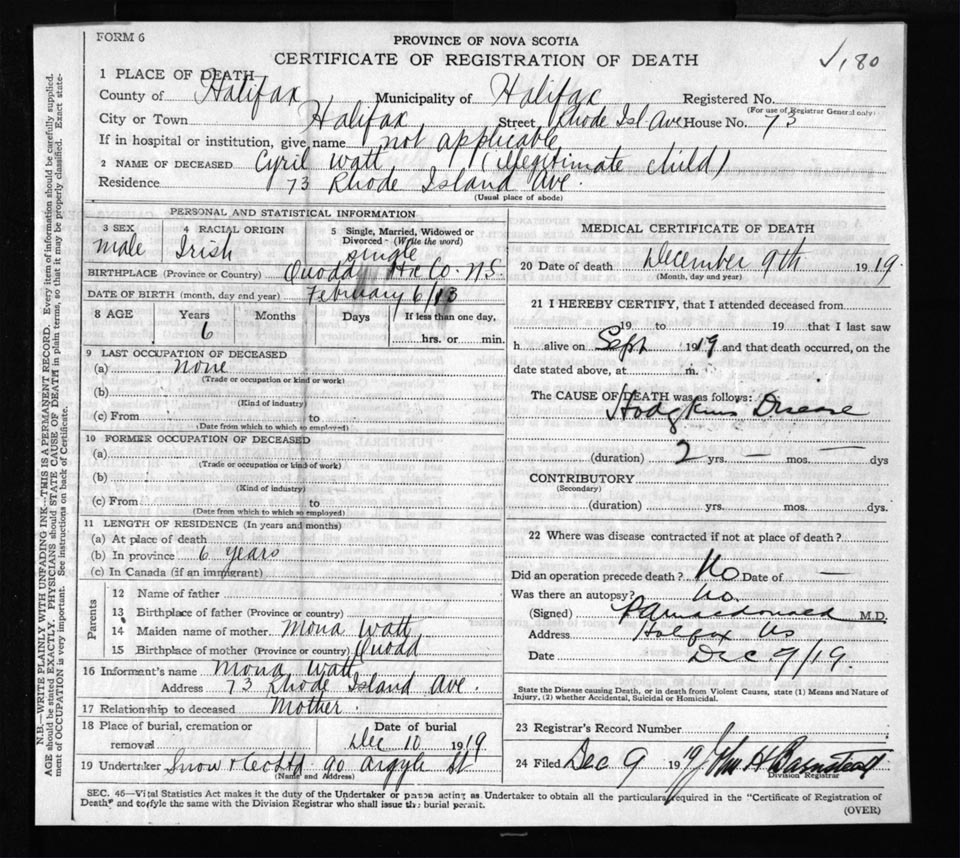 FORM 6
PROVINCE OF NOVA SCOTIA
CERTIFICATE OF REGISTRATION OF DEATH
√, 80
1 PLACE OF DEATH
County of Halifax Municipality of Halifax Registered No.
(For use of Registrar General only)
City or Town Halifax Street Rhode Isl Ave House No. 73
If in hospital or institution, give name not applicable
2 NAME OF DECEASED Cyril Watt (Illegitimate child)
Residence 73 Rhode Island Ave.
(Usual place of abode)
PERSONAL AND STATISTICAL INFORMATION
3 SEX male
4 RACIAL ORIGIN Irish
5 Single, Married, Widowed or Divorced - (Write the word) single
BIRTHPLACE (Province or Country) Quodd Hx Co. N.S.
DATE OF BIRTH (month, day and year) February 6/13
8 AGE Years Months Days If less than one day,
6 hrs. or min.
9 LAST OCCUPATION OF DECEASED
(a) none
(Trade or occupation or kind or work)
(b)
(Kind of industry)
(c) From to
(Date from which to which so employed)
10 FORMER OCCUPATION OF DECEASED
(a)
(Trade or occupation or kind of work)
(b)
(Kind of industry)
(c) From to
(Date from which to which so employed)
11 LENGTH OF RESIDENCE (In years and months)
(a) At place of death
(b) In province 6 years
(c) In Canada (if an immigrant)
Parents
12 Name of father
13 Birthplace of father (Province or country)
14 Maiden name of mother Mona Watt
15 Birthplace of mother (Province or country) Quodd
16 Informant's name Mona Watt
Address 73 Rhode Island Ave.
17 Relationship to deceased Mother
18 Place of burial, cremation or removal
Date of burial
Dec 10 1919
19 Undertaker Snow & Co Ltd 90 Argyle St
(Name and Address)
MEDICAL CERTIFICATE OF DEATH
20 Date of death December 9th 1919.
(Month, day and year)
21 I HEREBY CERTIFY, that I attended deceased from
19 to 19 that I last saw
h alive on Sept 1919 and that death occurred, on the
date stated above, at m.
The CAUSE OF DEATH was as follows:
Hodgkins Disease
(duration) 2 yrs. — mos. — dys
CONTRIBUTORY
(Secondary)
(duration) yrs. mos. dys.
22 Where was disease contracted if not at place of death?
Did an operation precede death? No Date of —
Was there an autopsy? No.
(Signed) Macdonald M.D.
Address Halifax NS
Date Dec 9/19.
State the Disease causing Death, or in death from Violent Causes, state (1) Means and Nature of
Injury, (2) whether Accidental, Suicidal or Homicidal.
23 Registrar's Record Number
24 Filed Dec 9 19 19 John H Barnstead
Division Registrar
SEC. 46—Vital Statistics Act makes it the duty of the Undertaker or person acting as Undertaker to obtain all the particulars required in the "Certificate of Registration of
Death" and to file the same with the Division Registrar who shall issue the burial permit.
(OVER)
N.B.—WRITE PLAINLY WITH UNFADING INK—THIS IS A PERMANENT RECORD. Every item of information should be carefully supplied.
AGE should be stated EXACTLY. PHYSICIANS should STATE CAUSE OF DEATH in plain terms, so that it may be properly classified. Exact state-
ment of OCCUPATION is very important. See instructions on back of Certificate.